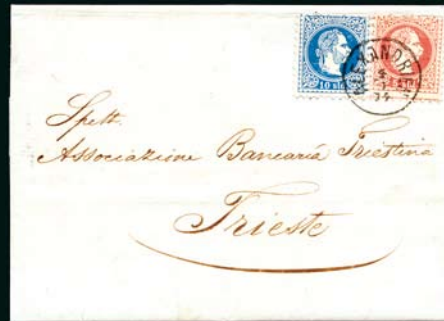 10 sld
ALEXANDRIEN
Spett.
Associazione Bancaria Triestina
Trieste